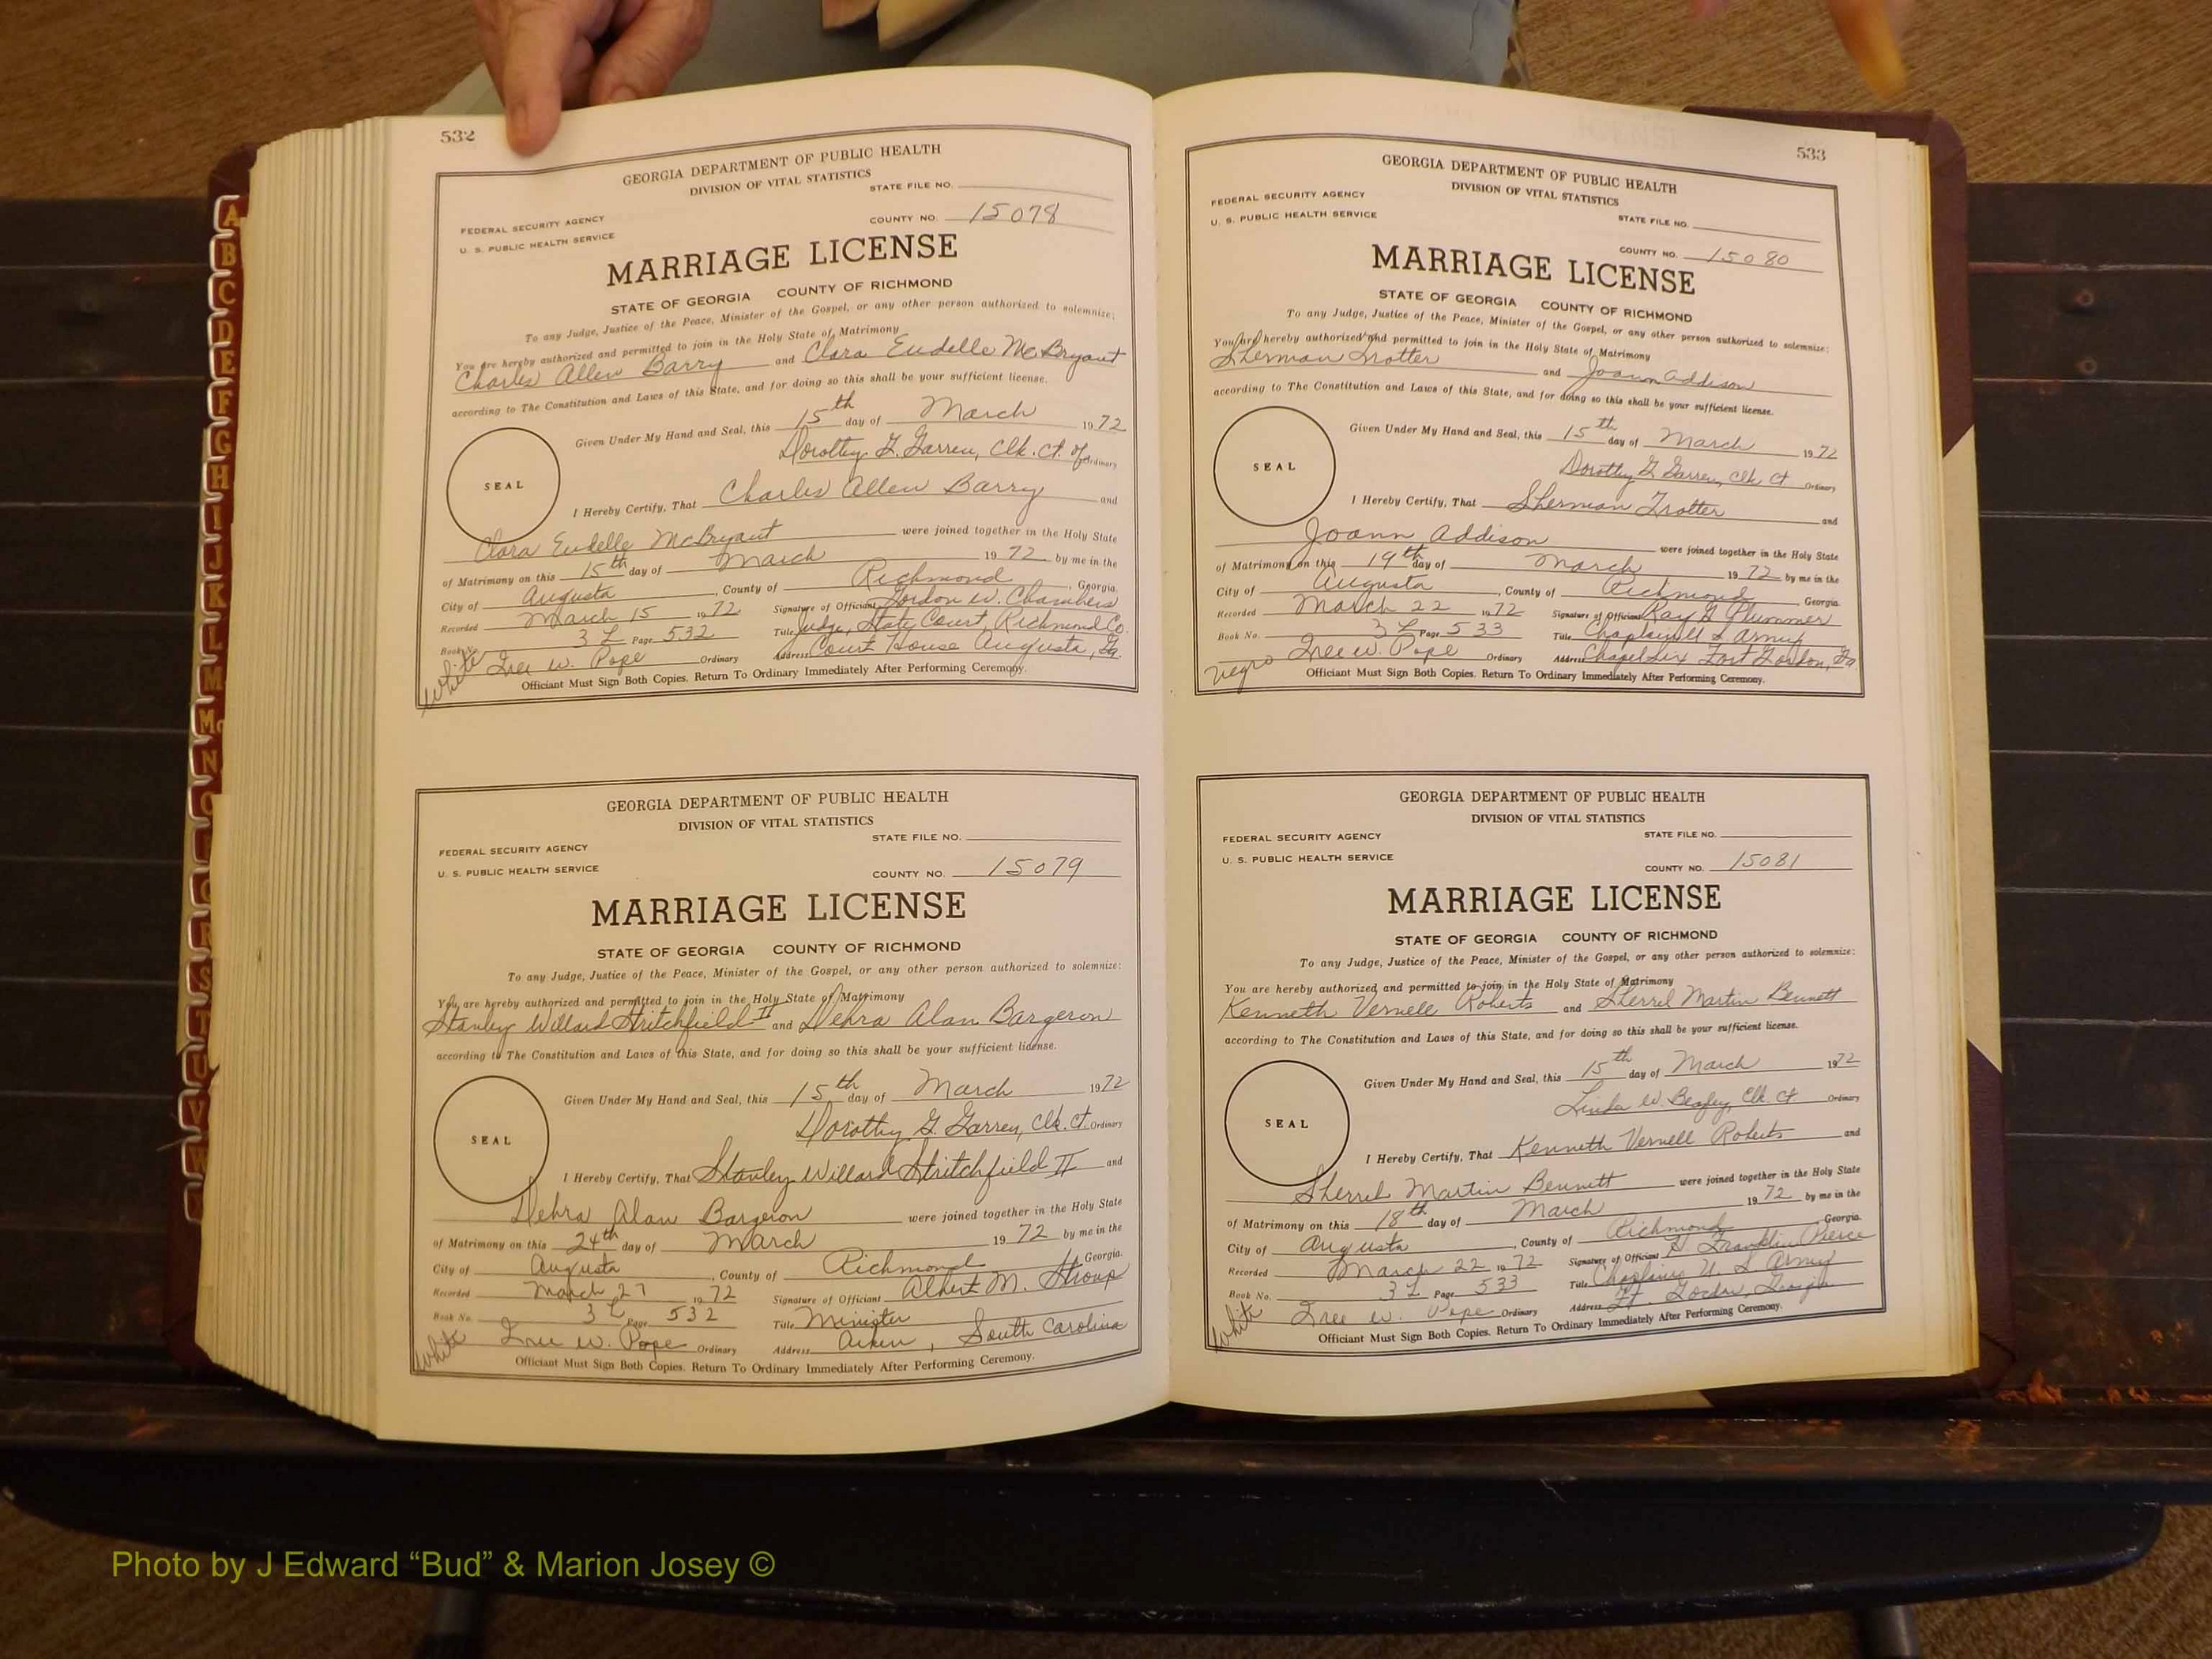 532
GEORGIA DEPARTMENT OF PUBLIC HEALTH
DIVISION OF VITAL STATISTICS
STATE FILE NO.
FEDERAL SECURITY AGENCY
U. S. PUBLIC HEALTH SERVICE
COUNTY NO. 15078
MARRIAGE LICENSE
STATE OF GEORGIA COUNTY OF RICHMOND
To any Judge, Justice of the Peace, Minister of the Gospel, or any other person authorized to solemnize:
You are hereby authorized and permitted to join in the Holy State of Matrimony
Charles Allen Barry and Clara Eudelle McBryant
according to The Constitution and Laws of this State, and for doing so this shall be your sufficient license.
Given Under My Hand and Seal, this 15th day of March 1972
Dorothy G. Garren, Clk. Ct. of Ordinary
SEAL
I Hereby Certify, That Charles Allen Barry and
Clara Eudelle McBryant were joined together in the Holy State
of Matrimony on this 15th day of March 1972 by me in the
City of Augusta, County of Richmond, Georgia.
Recorded March 15 1972 Signature of Official Gordon W. Chambers
Book No. 3 L Page 532 Title Judge, State Court, Richmond Co.
White Iree W. Pope Ordinary Address Court House Augusta, Ga.
Officiant Must Sign Both Copies. Return To Ordinary Immediately After Performing Ceremony.
GEORGIA DEPARTMENT OF PUBLIC HEALTH
DIVISION OF VITAL STATISTICS
STATE FILE NO.
FEDERAL SECURITY AGENCY
U. S. PUBLIC HEALTH SERVICE
COUNTY NO. 15079
MARRIAGE LICENSE
STATE OF GEORGIA COUNTY OF RICHMOND
To any Judge, Justice of the Peace, Minister of the Gospel, or any other person authorized to solemnize:
You are hereby authorized and permitted to join in the Holy State of Matrimony
Stanley Willard Stritchfield II and Debra Alan Bargeron
according to The Constitution and Laws of this State, and for doing so this shall be your sufficient license.
Given Under My Hand and Seal, this 15th day of March 1972
Dorothy G. Garren, Clk. Ct. Ordinary
SEAL
I Hereby Certify, That Stanley Willard Stritchfield II and
Debra Alan Bargeron were joined together in the Holy State
of Matrimony on this 24th day of March 1972 by me in the
City of Augusta, County of Richmond Georgia.
Recorded March 27 1972 Signature of Official Albert M. Stroup
Book No. 3 L Page 532 Title Minister
White Iree W. Pope Ordinary Address Aiken, South Carolina
Officiant Must Sign Both Copies. Return To Ordinary Immediately After Performing Ceremony.
533
GEORGIA DEPARTMENT OF PUBLIC HEALTH
DIVISION OF VITAL STATISTICS
FEDERAL SECURITY AGENCY
U. S. PUBLIC HEALTH SERVICE
STATE FILE NO.
COUNTY NO. 15080
MARRIAGE LICENSE
STATE OF GEORGIA COUNTY OF RICHMOND
To any Judge, Justice of the Peace, Minister of the Gospel, or any other person authorized to solemnize:
You are hereby authorized and permitted to join in the Holy State of Matrimony
Sherman Trotter and Joann Addison
according to The Constitution and Laws of this State, and for doing so this shall be your sufficient license.
Given Under My Hand and Seal, this 15th day of March 1972
Dorothy G. Garren, Clk Ct Ordinary
SEAL
I Hereby Certify, That Sherman Trotter and
Joann Addison were joined together in the Holy State
of Matrimony on this 19th day of March 1972 by me in the
City of Augusta, County of Richmond Georgia.
Recorded March 22 1972 Signature of Official Ray G Plummer
Book No. 3 L Page 533 Title Chaplain U S Army
Negro Iree W. Pope Ordinary Address Chapel Six Fort Gordon, Ga
Officiant Must Sign Both Copies. Return To Ordinary Immediately After Performing Ceremony.
GEORGIA DEPARTMENT OF PUBLIC HEALTH
DIVISION OF VITAL STATISTICS
FEDERAL SECURITY AGENCY
U. S. PUBLIC HEALTH SERVICE
STATE FILE NO.
COUNTY NO. 15081
MARRIAGE LICENSE
STATE OF GEORGIA COUNTY OF RICHMOND
To any Judge, Justice of the Peace, Minister of the Gospel, or any other person authorized to solemnize:
You are hereby authorized and permitted to join in the Holy State of Matrimony
Kenneth Vernell Roberts and Sherrel Martin Bennett
according to The Constitution and Laws of this State, and for doing so this shall be your sufficient license.
Given Under My Hand and Seal, this 15th day of March 1972
Linda W. Beasley, Clk. Ct. Ordinary
SEAL
I Hereby Certify, That Kenneth Vernell Roberts and
Sherrel Martin Bennett were joined together in the Holy State
of Matrimony on this 18th day of March 1972 by me in the
City of Augusta, County of Richmond Georgia.
Recorded March 22 1972 Signature of Official Franklin Pierce
Book No. 3 L Page 533 Title Chaplain U. S Army
White Iree W. Pope Ordinary Address Ft. Gordon, Georgia
Officiant Must Sign Both Copies. Return To Ordinary Immediately After Performing Ceremony.
A
B
C
D
E
F
G
H
I
J
K
L
M
Mc
N
S
T
U
V
W
Photo by J Edward “Bud” & Marion Josey ©